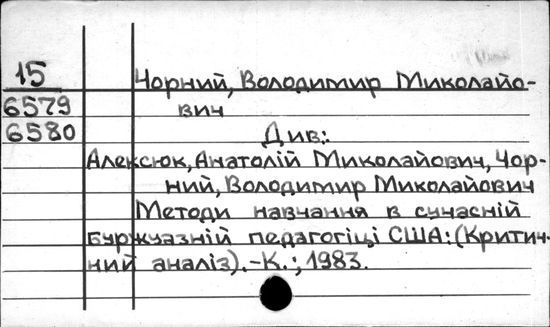 15 Чорний, Володимир Миколайо-
6579 вич
6580 Див:
Алексюк, Анатолій Миколайович, Чор-
ний, Володимир Миколайович
Методи навчання в сучасній
буржуазній педагогіці США: (Критич-
ний аналіз).-К.; 1983.